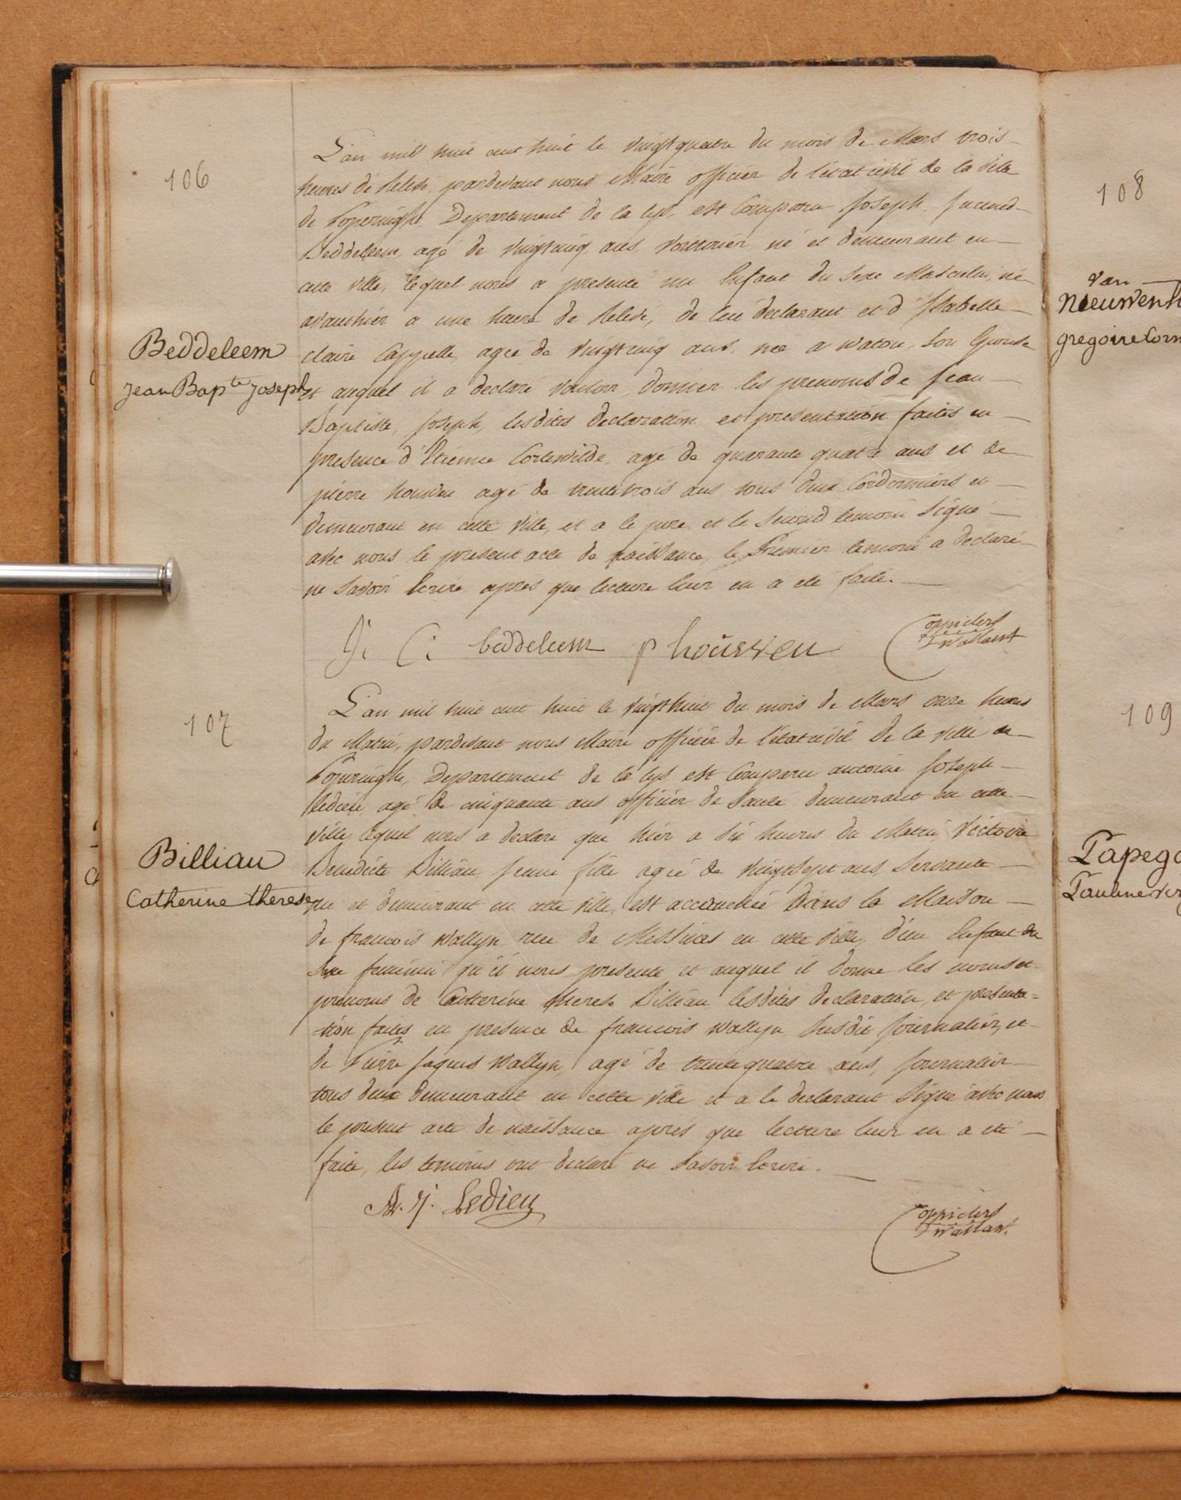 106
Beddeleem
Jean Bap.te Joseph
L'an mil huit cent huit le vingtquatre du mois de Mars trois
heures de relevé, pardevant nous Maire officier de l'état civil de la ville
de Poperinghe, Departement de la Lys, est comparu Joseph
Beddeleem agé de vingtcinq ans né et demeurant en
cette ville, lequel nous a presenté un Enfant du sexe Masculin, né
avanthier a une heure de relevé, de lui declarant et d'Isabelle
Claire Cappelle, agée de vingtcinq ans, née a Watou, son Epouse
et auquel il a declaré vouloir donner les prenoms de Jean
Baptiste, Joseph, lesdites declaration et presentation faites en
presence d'Etienne Cortewilde, agé de quarante quatre ans et de
pierre houven agé de trentetrois ans tous deux Cordonniers et
demeurant en cette ville, et a le pere et le second temoin signé
avec nous le present acte de naissance, le Premier temoin a declaré
ne savoir Ecrire apres que lecture leur en a eté faite.
J: C: beddeleem p houvven
107
Billiau
Catherine therese
L'an mil huit cent huit le vingthuit du mois de Mars onze heures
du Matin, pardevant nous Maire officier de l'état civil de la ville de
Poperinghe, Departement de la Lys, est comparu antoine Joseph
Ledieu agé de cinquante ans officier de santé demeurant en cette
ville, lequel nous a declaré que hier a six heures du Matin Victoire
Benedicte Billiau, jeune fille agée de vingtsept ans, servante
née et demeurant en cette ville, est accouchée dans la Maison
de francois Wallyn rue de Messines en cette ville, d'un Enfant du
sexe feminin qu'il nous presente et auquel il donne les noms et
prenoms de Catherine therese Billiau lesdites declaration et presenta-
tion faites en presence de francois Wallyn susdit journalier, et
de Pierre Jaques Wallyn agé de trentequatre ans, journalier
tous deux demeurant en cette ville et a le declarant signé avec nous
le present acte de naissance apres que lecture leur en a eté
faite, les temoins ont declaré ne savoir Ecrire.
A. J. Ledieu
108
Van
Nieuwenh
gregoire Corn
109
Papego